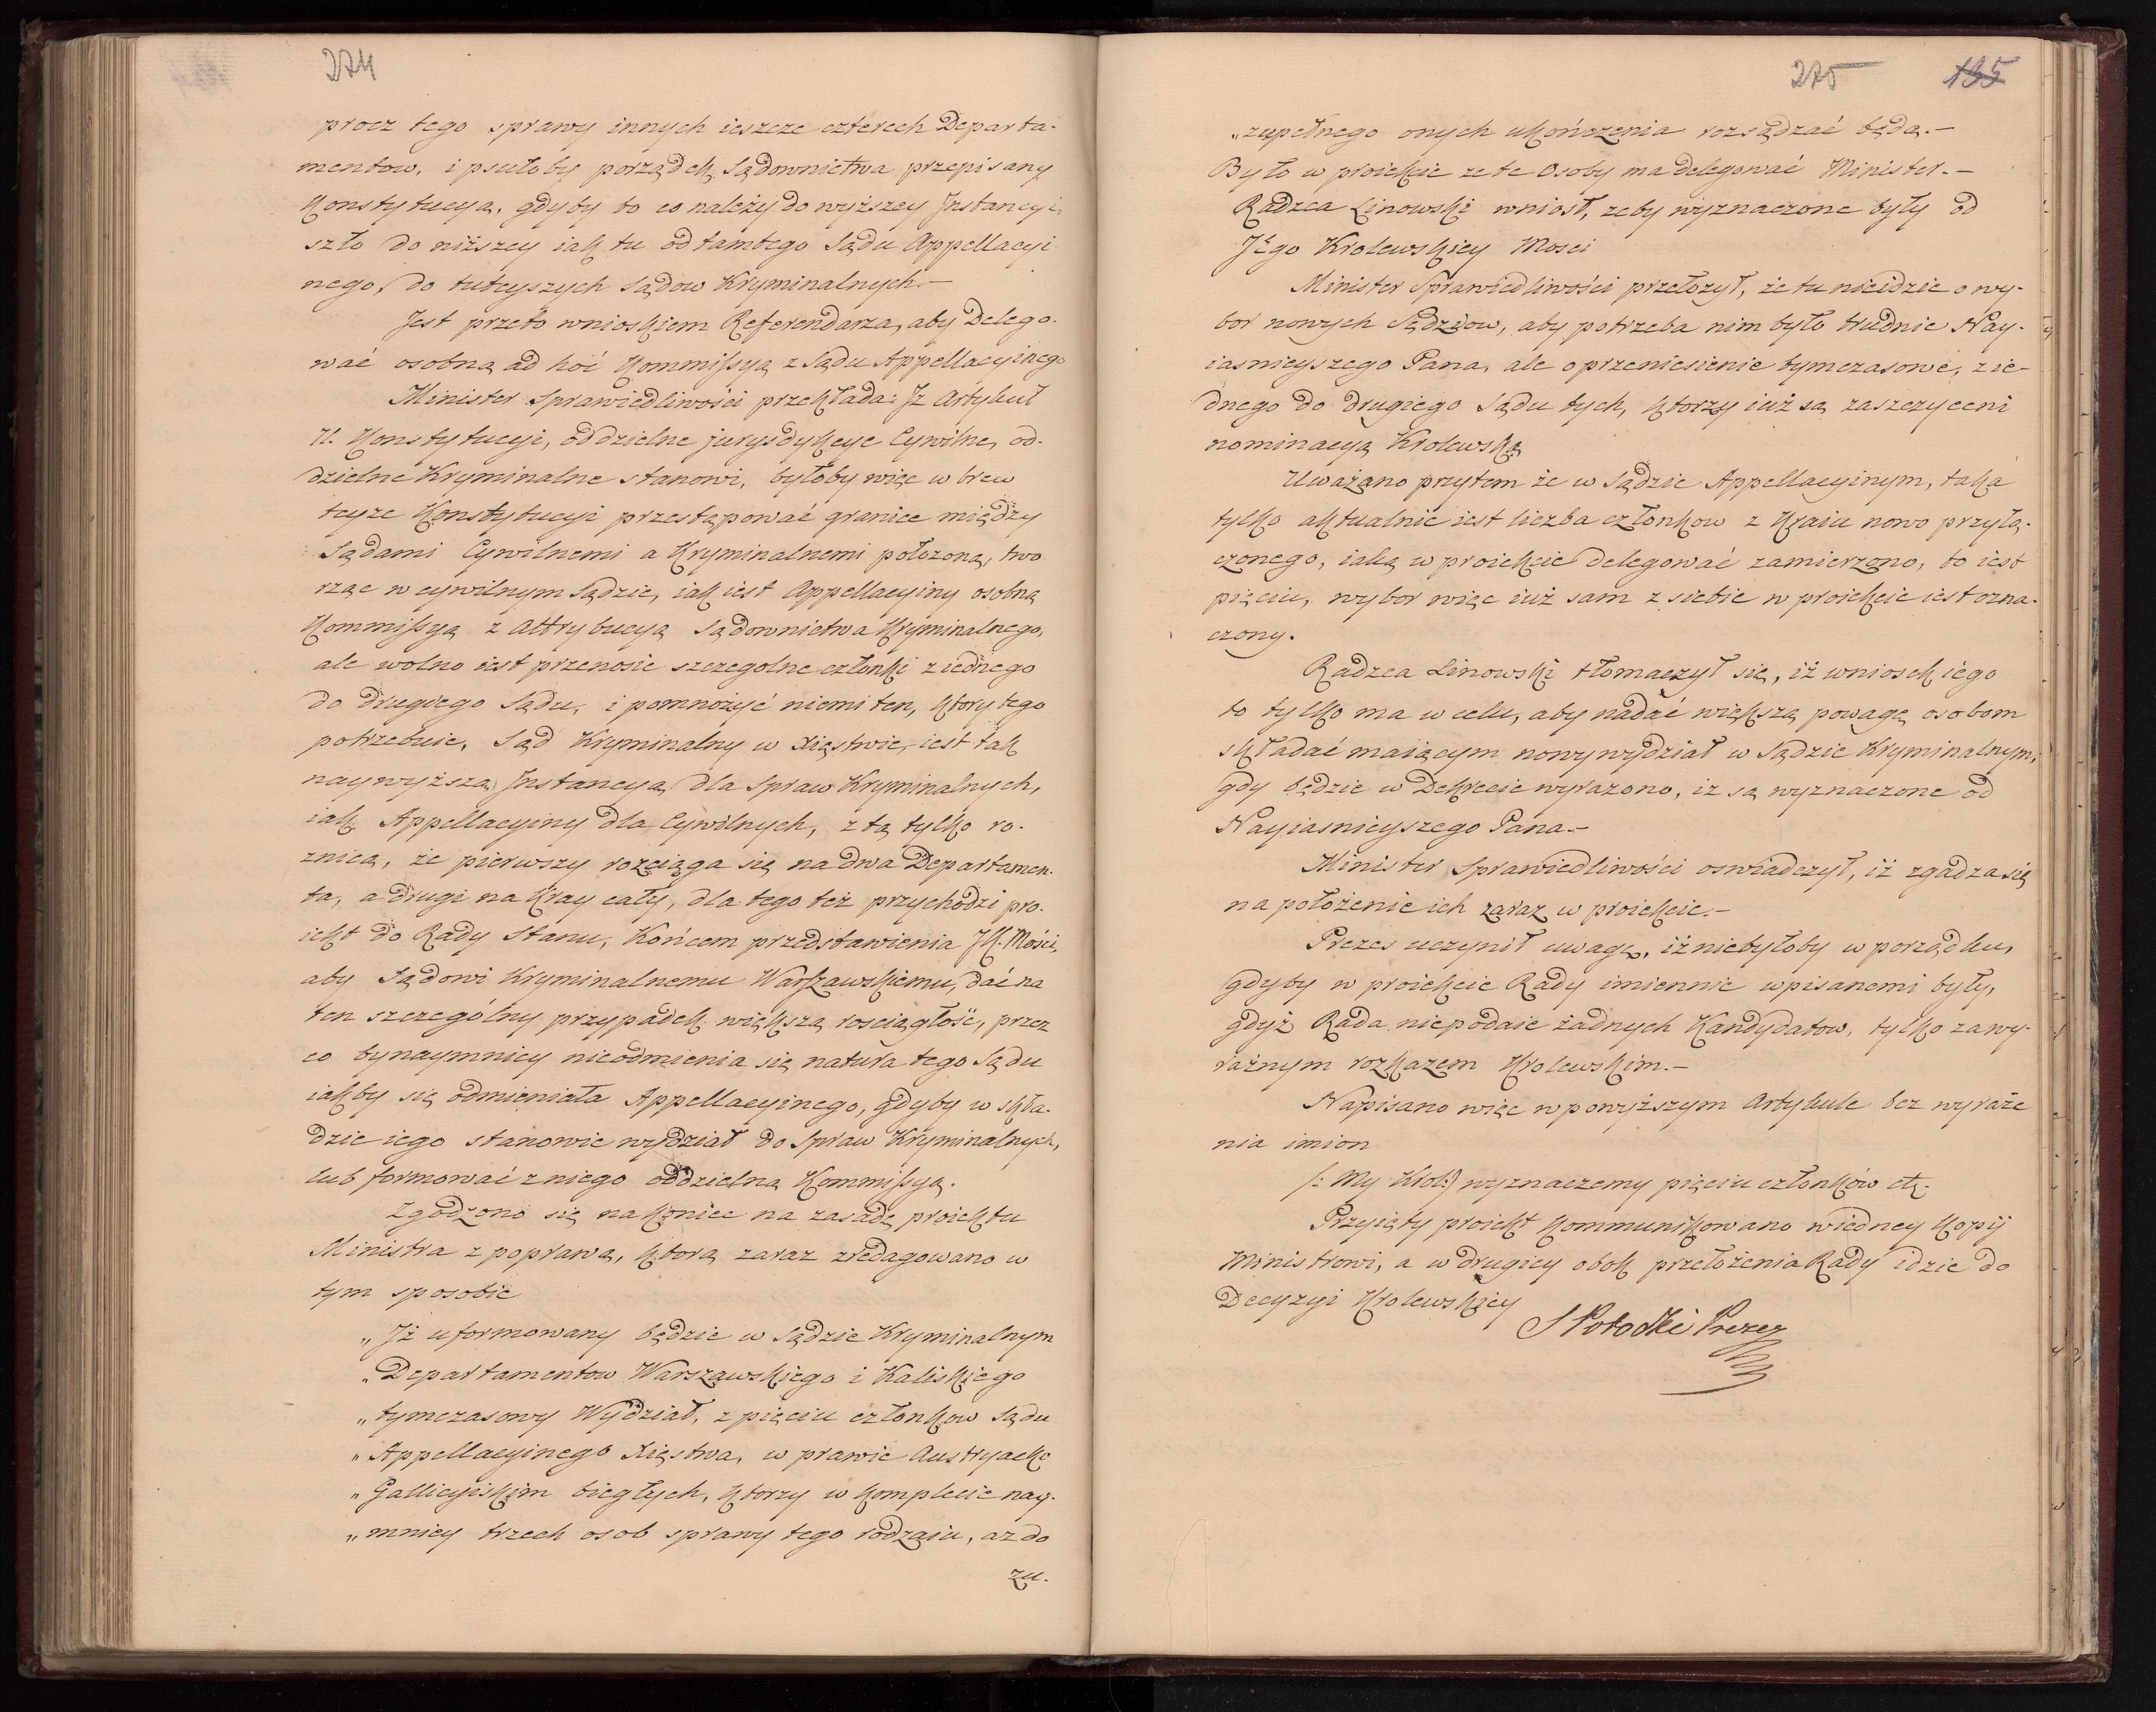 274
procz tego sprawy innych ieszcze czterech Departa-
mentow, i psułoby porządek Sądownictwa przepisany
Konstytucyą, gdyby to co należy do wyższey Jnstancyi,
szło do niższey iak tu od tamtego Sądu Appellacyi
nego, do tuteyszych Sądow Kryminalnych.-
Jest przeto wnioskiem Referendarza, aby Delego-
wać osobną ad hoć Kommissyą z Sądu Appellacyinego
Minister Sprawiedliwości przekłada: Jż Artykuł
Konstytucyi, oddzielne jurysdykcye Cywilne, od-
dzielne Kryminalne stanowi, byłoby więc w brew
teyze Konstytucyi przestępować granice między
Sądami Cywilnemi a Kryminalnemi położoną, two
rząc w cywilnym Sądzie, iak iest Appellacyiny osobną
Kommissyą z Attrybucyą Sądownictwa Kryminalnego,
ale wolno iest przenosic szczegolne członki z iednego
do drugiego Sądu, i pomnożyć niemi ten, ktory tego
potrzebuie, Sąd Kryminalny w Xięstwie, iest tak
naywyższą Jnstancyą dla Spraw Kryminalnych,
iak Appellacyiny dla Cywilnych, z tą tylko ro-
żnicą, że pierwszy rozciąga się na dwa Departamen-
ta, a drugi na Kray cały, dla tego też przychodzi pro-
iekt do Rady Stanu, Końcem przedstawienia JK. Mości,
aby Sądowi Kryminalnemu Warszawskiemu, dać na
ten szczególny przypadek większą rosciągłość, przez
co bynaymniey nieodmienia się natura tego Sądu
iakby się odmieniała Appellacyinego, gdyby w skła-
dzie iego stanowic wydział do Spraw Kryminalnych,
lub formować z niego oddzielną Kommissyą.
Zgodzono się nakoniec na zasadę proiektu
Ministra z poprawą, ktorą zaraz zredagowano w
tym sposobie
„Jż uformowany będzie w Sądzie Kryminalnym
„Departamentow Warszawskiego i Kaliskiego
„tymczasowy Wydział, z pięciu członkow Sądu
„Appellacyinego Xięstwa, w prawie Austryacko
„Gallicyiskim biegłych, ktorzy w komplecie nay-
„mniey trzech osob sprawy tego rodzaiu, az do
zu-
275 135
„zupełnego onych ukończenia rozsądzać będą.-
Było w proiekcie ze te Osoby ma delegować Minister.-
Radzca Linowski wniosł, zeby wyznaczone były od
Jego Krolewskiey Mosci
Minister Sprawiedliwości przełożył, że tu nieidzie o wy-
bor nowych Sędziow, aby potrzeba nim było trudnić Nay-
iasnieyszego Pana, ale o przeniesienie tymczasowe, z ie-
dnego do drugiego Sądu tych, ktorzy iuż są zaszczyceni
nominacyą Krolewską
Uważano przytem że w Sądzie Appellacyinym, taka
tylko aktualnie iest liczba członkow z Kraiu nowo przyłą-
czonego, iaką w proiekcie delegować zamierzono, to iest
pięciu, wybor więc iuż sam z siebie w proiekcie iest ozna-
czony.
Radzca Linowski tłomaczył się, iż wniosek iego
to tylko ma w celu, aby nadać większą powagę osobom
składać maiącym nowy wydział w Sądzie Kryminalnym,
gdy będzie w Dekrecie wyrazono, iz są wyznaczone od
Nayiasnieyszego Pana.-
Minister Sprawiedliwości oswiadczył, iż zgadza się
na położenie ich zaraz w proiekcie.-
Prezes uczynił uwagę, iż niebyłoby w porządku,
gdyby w proiekcie Rady imiennie wpisanemi były,
gdyż Rada niepodaie żadnych Kandydatow, tylko za wy-
raźnym rozkazem Krolewskim.-
Napisano więc w powyższym Artykule bez wyraże
nia imion
/: My Król:/ wyznaczemy pięciu członków etc.
Przyięty proiekt kommunikowano w iedney kopij
Ministrowi, a w drugiey obok przełożenia Rady idzie do
Decyzyi Krolewskiey
S Potocki Prezez